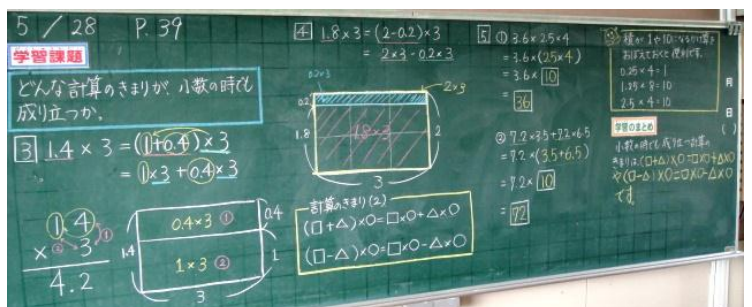 5/28 P.39
学習課題
どんな計算のきまりが、小数の時でも
成り立つか。
3 1.4×3=(1+0.4)×3
=1×3+0.4×3
1.4
×3 ①
②
4.2
0.4×3 ①
1×3 ②
0.4
1
1.4
3
4 1.8×3=(2-0.2)×3
=2×3-0.2×3
0.2×3
2×3
0.2
1.8
1.8×3
2
3
計算のきまり(2)
(□+△)×○=□×○+△×○
(□-△)×○=□×○-△×○
5 ① 3.6×2.5×4
=3.6×(2.5×4)
=3.6×10
=36
② 7.2×3.5+7.2×6.5
=7.2×(3.5+6.5)
=7.2×10
=72
積が1や10になるかけ算を
おぼえておくと便利です。
0.25×4=1
1.25×8=10
2.5×4=10
学習のまとめ
小数の時でも成り立つ計算の
きまりは、(□+△)×○=□×○+△×○
や(□-△)×○=□×○-△×○
です。
月
日
( )